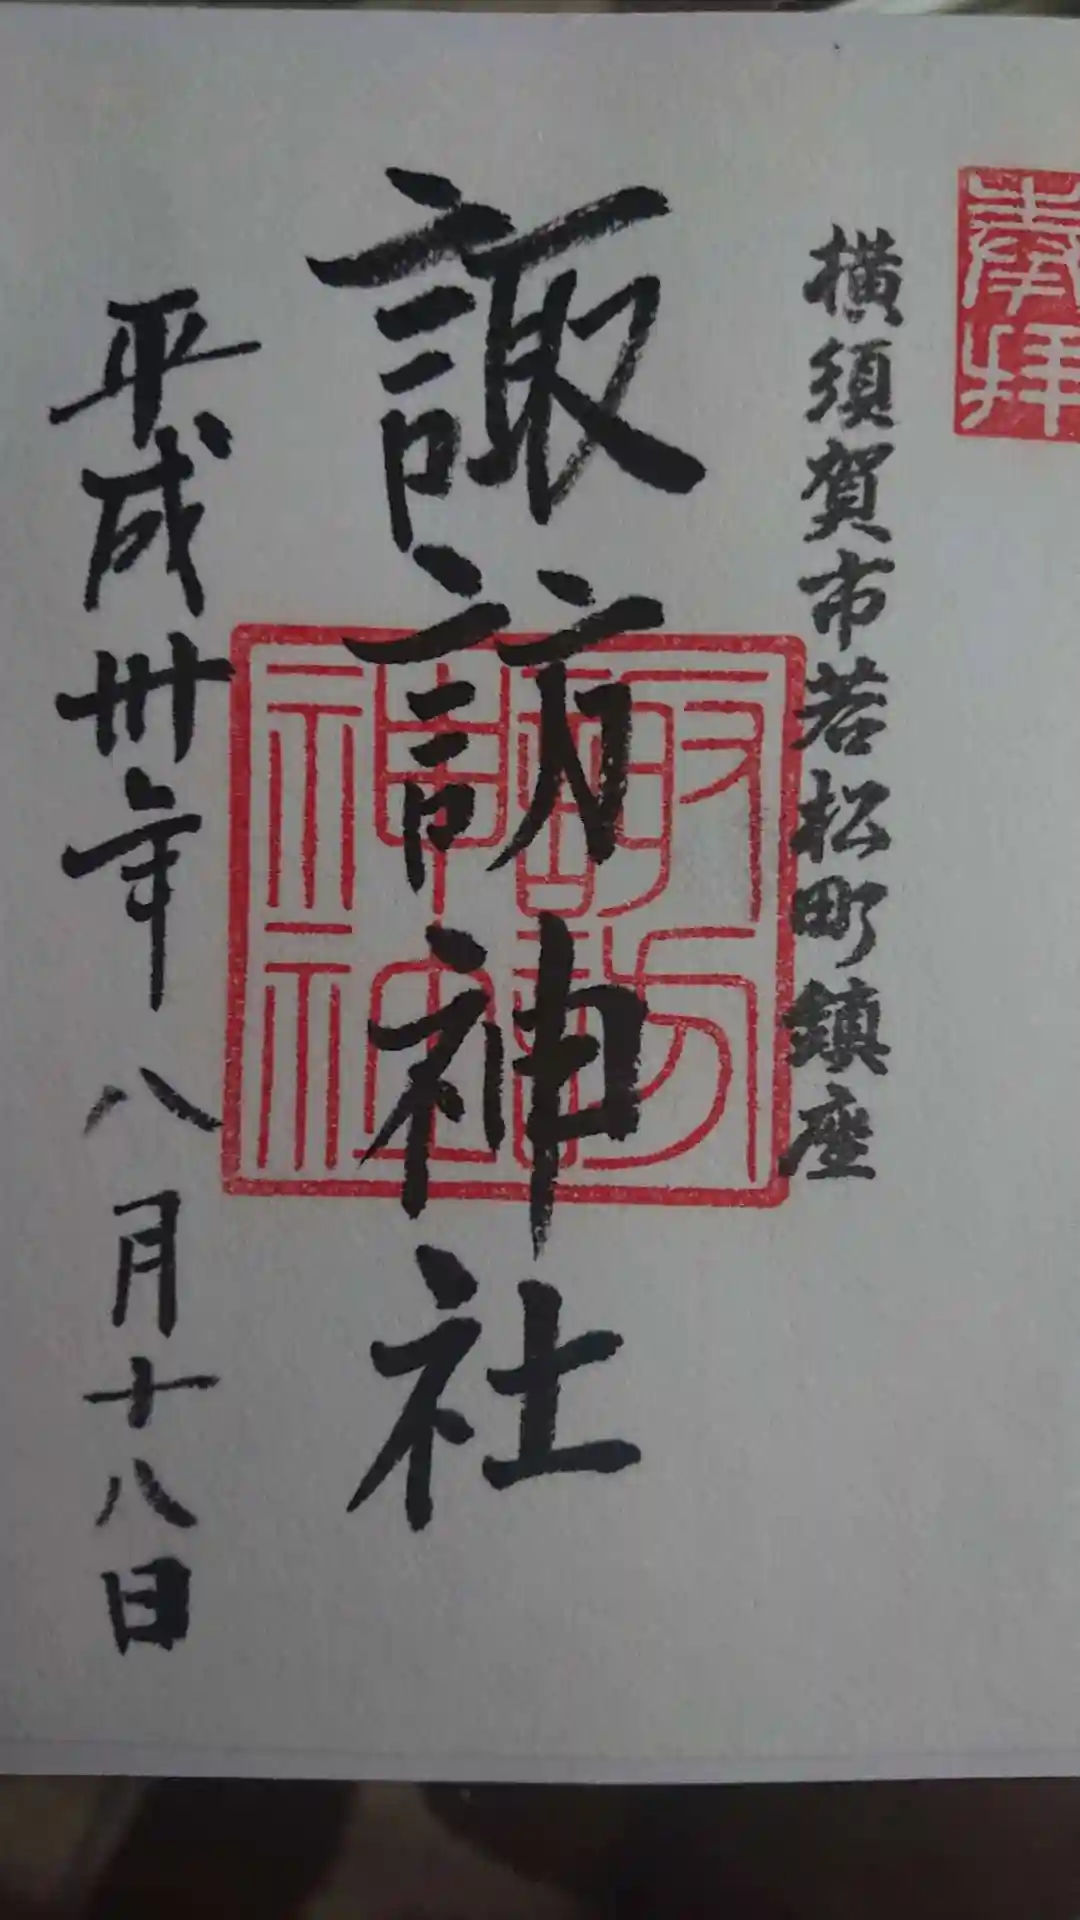 奉拝
横須賀市若松町鎮座
諏訪神社
諏訪神社神社
平成卅年八月十八日